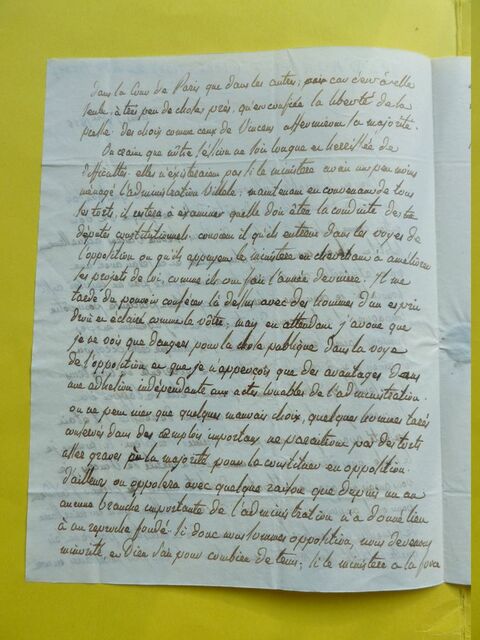 dans la Cour de Paris que dans les autres; car c'est à elle
seule, à très peu de chose près, qu'est confiée la liberté de la
presse. des choix comme ceux de Vincens affermiront la majorité.
On craint que nôtre session ne soit longue et hérissée de
difficultés. elles n'existeroient pas si le ministère avoit un peu moins
ménagé l'administration Villele; maintenant en convenant de tous
ses torts, il restera à examiner quelle doit être la conduite des
députés constitutionnels. convient il qu'ils entrent dans les voyes de
l'opposition ou qu'ils appuyent le ministère en cherchant à améliorer
les projets de loi, comme ils ont fait l'année dernière. Il me
tarde de pouvoir conférer là dessus avec des hommes d'un esprit
droit et éclairé comme le vôtre; mais en attendant j'avoue que
je ne vois que dangers pour la chose publique dans la voye
de l'opposition et que je n'apperçois que des avantages dans
une adhésion indépendante aux actes louables de l'administration.
on ne peut nier que quelques mauvais choix, quelques hommes tarés
conservés dans des emplois importans ne paroitront pas des torts
assez graves à la majorité pour la constituer en opposition.
d'ailleurs on opposera avec quelque raison que depuis un an
aucune branche importante de l'administration n'a donné lieu
à un reproche fondé. si donc nous sommes opposition, nous devenons
minorité, et Dieu sait pour combien de tems; si le ministère a la force